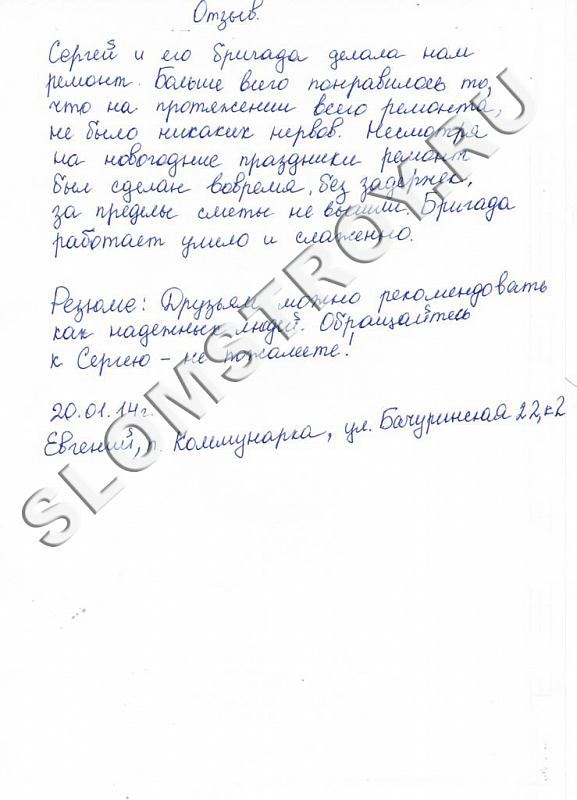 Отзыв.
Сергей и его бригада делала нам
ремонт. Больше всего понравилось то,
что на протяжении всего ремонта,
не было никаких нервов. Несмотря
на новогодние праздники ремонт
был сделан вовремя, без задержек,
за пределы сметы не вышли. Бригада
работает умело и слаженно.
Резюме: Друзьям можно рекомендовать
как надежных людей. Обращайтесь
к Сергею - не пожалеете!
20.01.14г.
Евгений, п. Коммунарка, ул. Бачуринская 22, к2
SLOMSTROY.RU